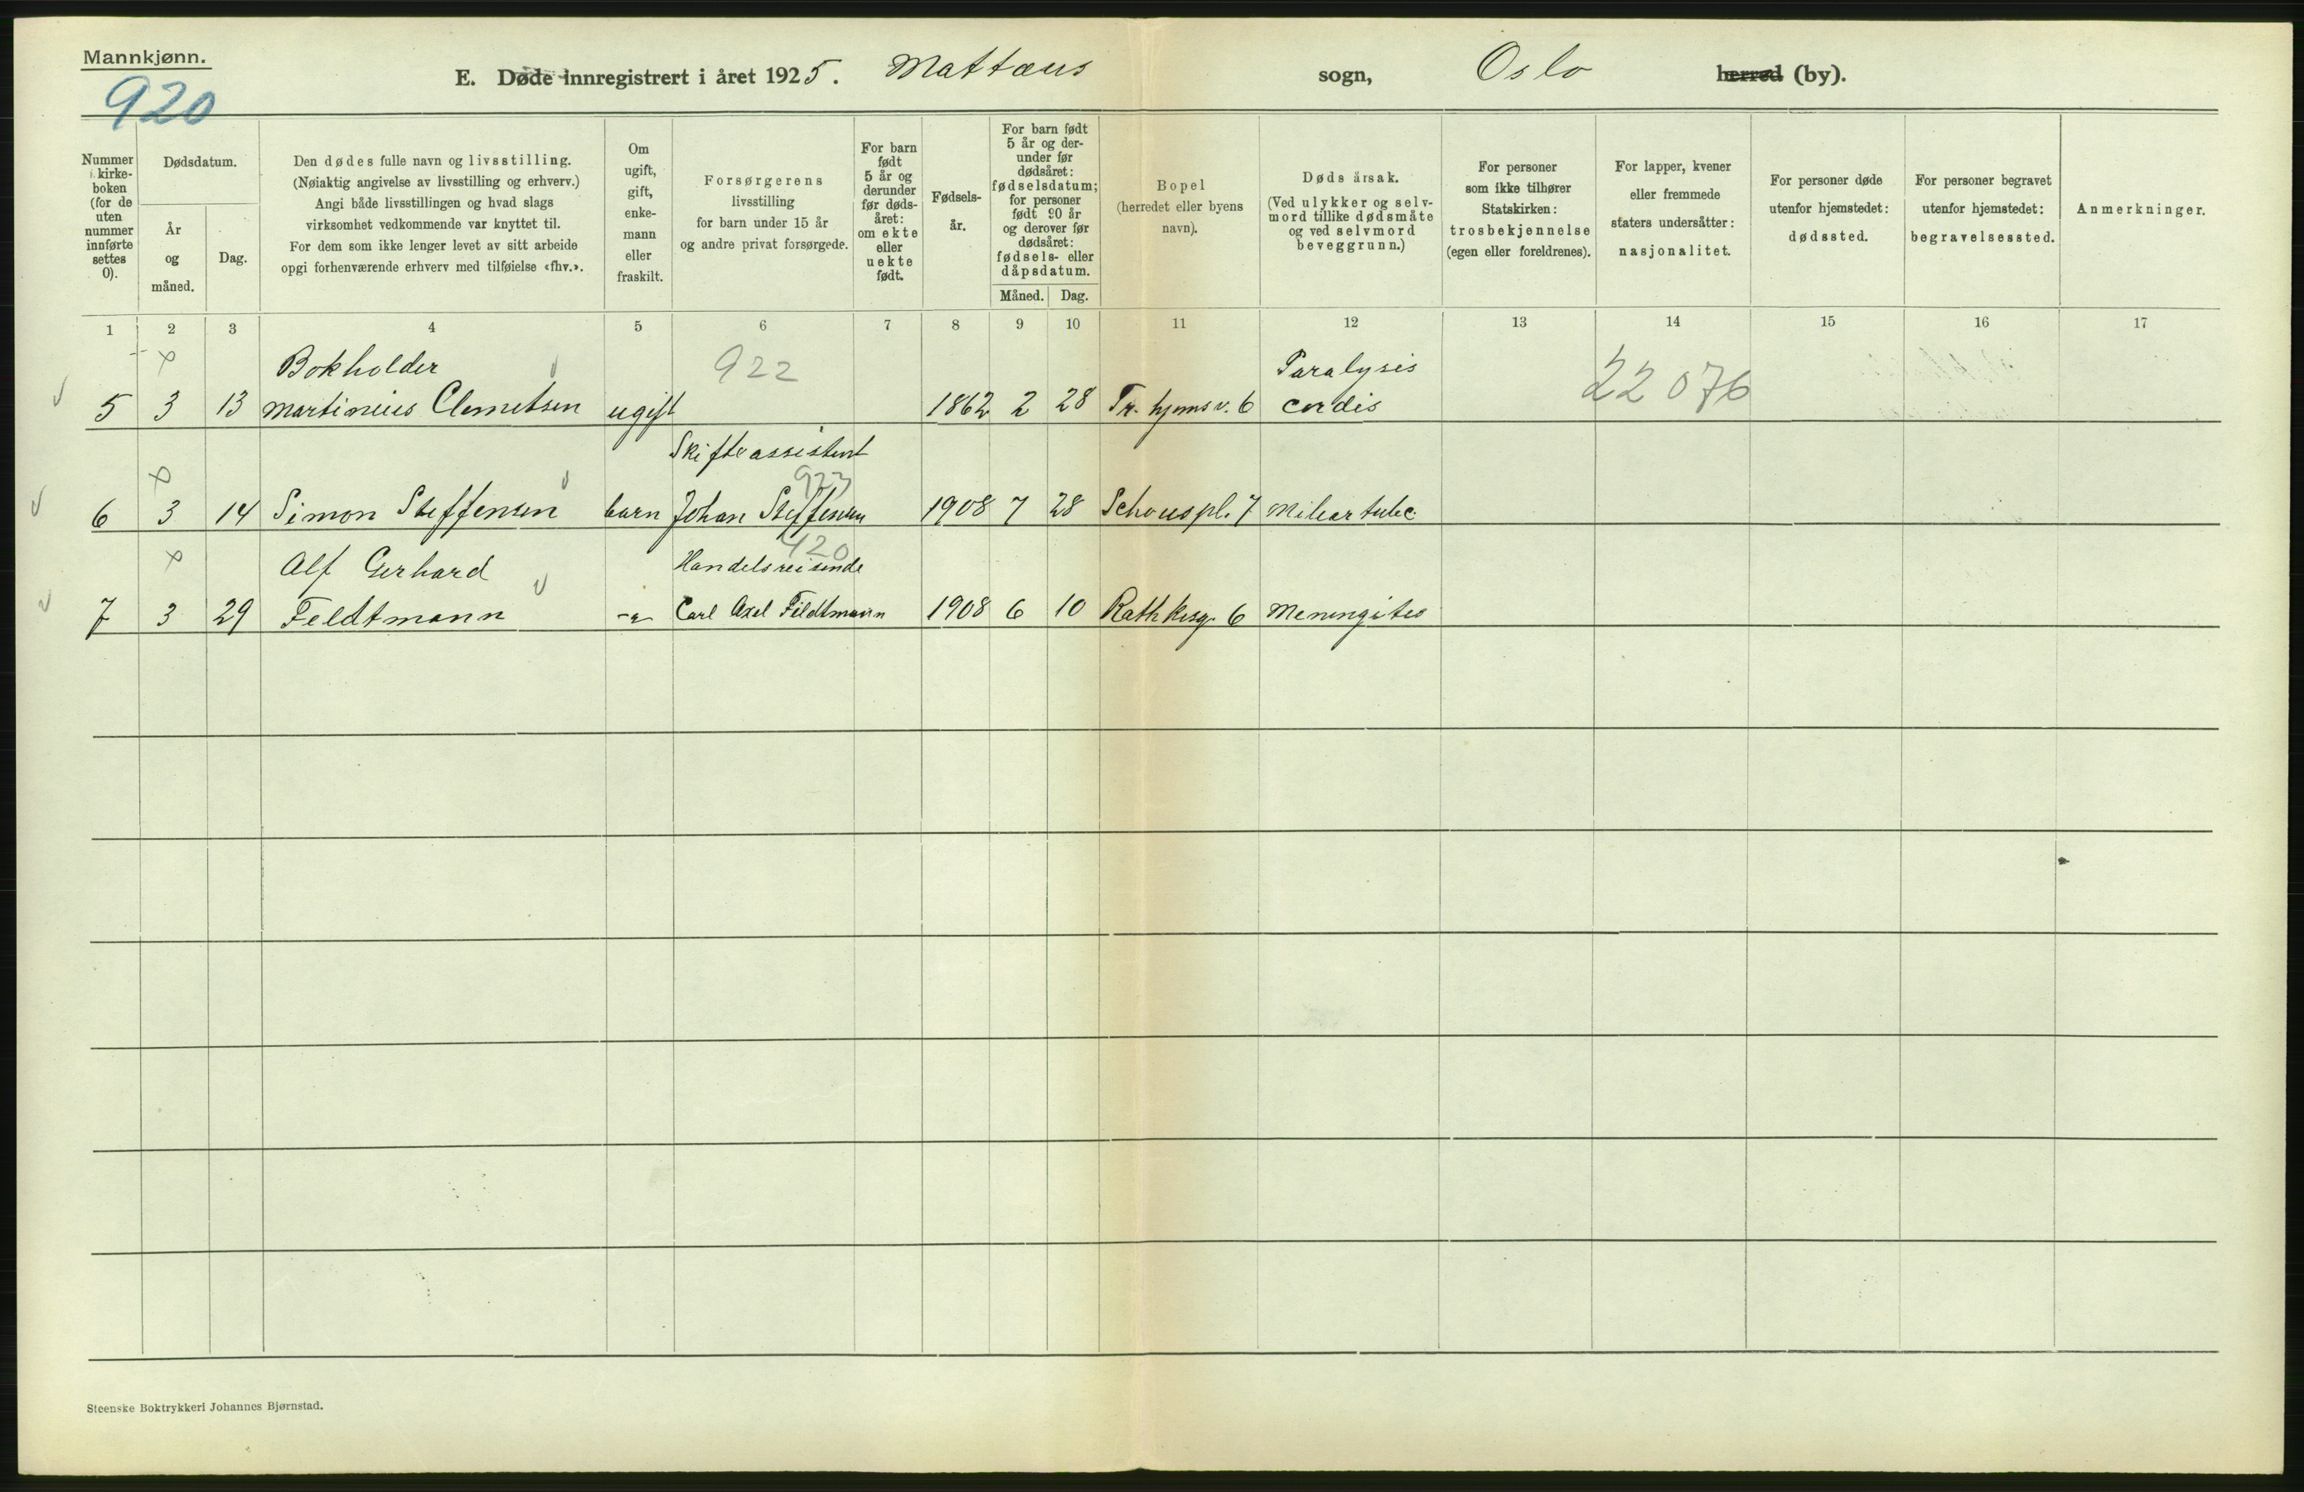 Mannkjønn.
920
E. Døde innregistrert i året 1925. Mattæus sogn, Oslo herred (by).
Nummer
i kirke-
boken
(for de
uten
nummer
innførte
settes
0).
Dødsdatum.
År
og
måned.
Dag.
Den dødes fulle navn og livsstilling.
(Nøiaktig angivelse av livsstilling og erhverv.)
Angi både livsstillingen og hvad slags
virksomhet vedkommende var knyttet til.
For dem som ikke lenger levet av sitt arbeide
opgi forhenværende erhverv med tilføielse «fhv.».
Om
ugift,
gift,
enke-
mann
eller
fraskilt.
Forsørgerens
livsstilling
for barn under 15 år
og andre privat forsørgede.
For barn
født
5 år og
derunder
før døds-
året:
om ekte
eller
uekte
født.
Fødsels-
år.
For barn født
5 år og der-
under før
dødsåret:
fødselsdatum;
for personer
født 90 år
og derover før
dødsåret:
fødsels- eller
dåpsdatum.
Måned. Dag.
Bopel
(herredet eller byens
navn).
Dødsårsak.
(Ved ulykker og selv-
mord tillike dødsmåte
og ved selvmord
beveggrunn.)
For personer
som ikke tilhører
Statskirken:
trosbekjennelse
(egen eller foreldrenes).
For lapper, kvener
eller fremmede
staters undersåtter:
nasjonalitet.
For personer døde
utenfor hjemstedet:
dødssted.
For personer begravet
utenfor hjemstedet:
begravelsessted.
Anmerkninger.
1 2 3 4 5 6 7 8 9 10 11 12 13 14 15 16 17
Bokholder 922 Paralysis 22 076
5 3 13 Martinius Clemetsen ugift 1862 2 28 Tr. hjemsv. 6 cordis
Skifteassistent
923
6 3 14 Simon Steffensen barn Johan Steffensen 1908 7 28 Schouspl. 7 Miliartubc.
420
Alf Gerhard Handelsreisende
7 3 29 Feldtmann -"- Carl Axel Feldtmann 1908 6 10 Rathkesg. 6 Meningites
Steenske Boktrykkeri Johannes Bjørnstad.